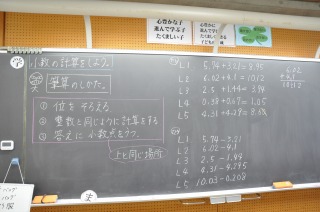 心豊かな子
進んで学ぶ子
たくましい子
小数の計算をしよう。
筆算のしかた。
① 位をそろえる。
② 整数と同じように計算をする
③ 答えに小数点をうつ。
上と同じ場所
L1 5.74+3.21=8.95
L2 6.02+4.1=10.12
L3 2.5+1.44=3.94
L4 0.38+0.67=1.05
L5 4.31+4.29=8.60
6.02
+4.1
10.12
L1 5.74-3.21
L2 6.02-4.1
L3 2.5-1.44
L4
L5 10.03-0.208